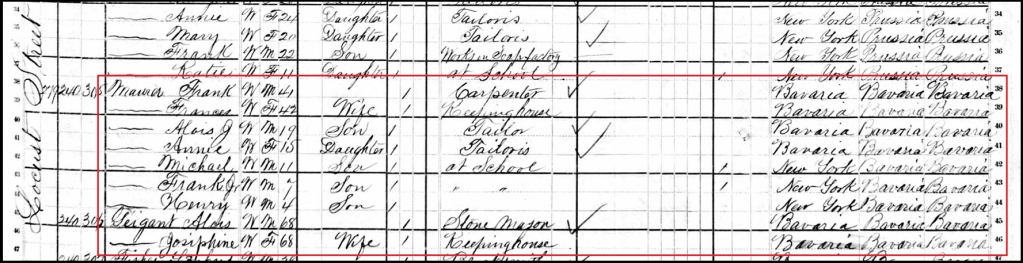 Annie W F 24 Daughter 1 Tailoris New York Prussia Prussia 34
Mary W F 20 Daughter 1 Tailoris New York Prussia Prussia 35
Frank W M 22 Son 1 Works in Soap factory New York Prussia Prussia 36
Katie W F 11 Daughter 1 at School 1 New York Prussia Prussia 37
Locust Street
240 305 Maurer Frank W M 41 1 Carpenter Bavaria Bavaria Bavaria 38
Frances W F 42 Wife 1 Keepinghouse Bavaria Bavaria Bavaria 39
Alois J W M 19 Son 1 Tailor Bavaria Bavaria Bavaria 40
Annie W F 15 Daughter 1 Tailoris Bavaria Bavaria Bavaria 41
Michael W M 11 Son 1 at School 1 New York Bavaria Bavaria 42
Frank J W M 7 Son 1 " " 1 New York Bavaria Bavaria 43
Henry W M 4 Son 1 New York Bavaria Bavaria 44
240 306 Feigant Alois W M 68 1 Stone Mason Bavaria Bavaria Bavaria 45
Josiphine W F 68 Wife 1 Keepinghouse Bavaria Bavaria Bavaria 46